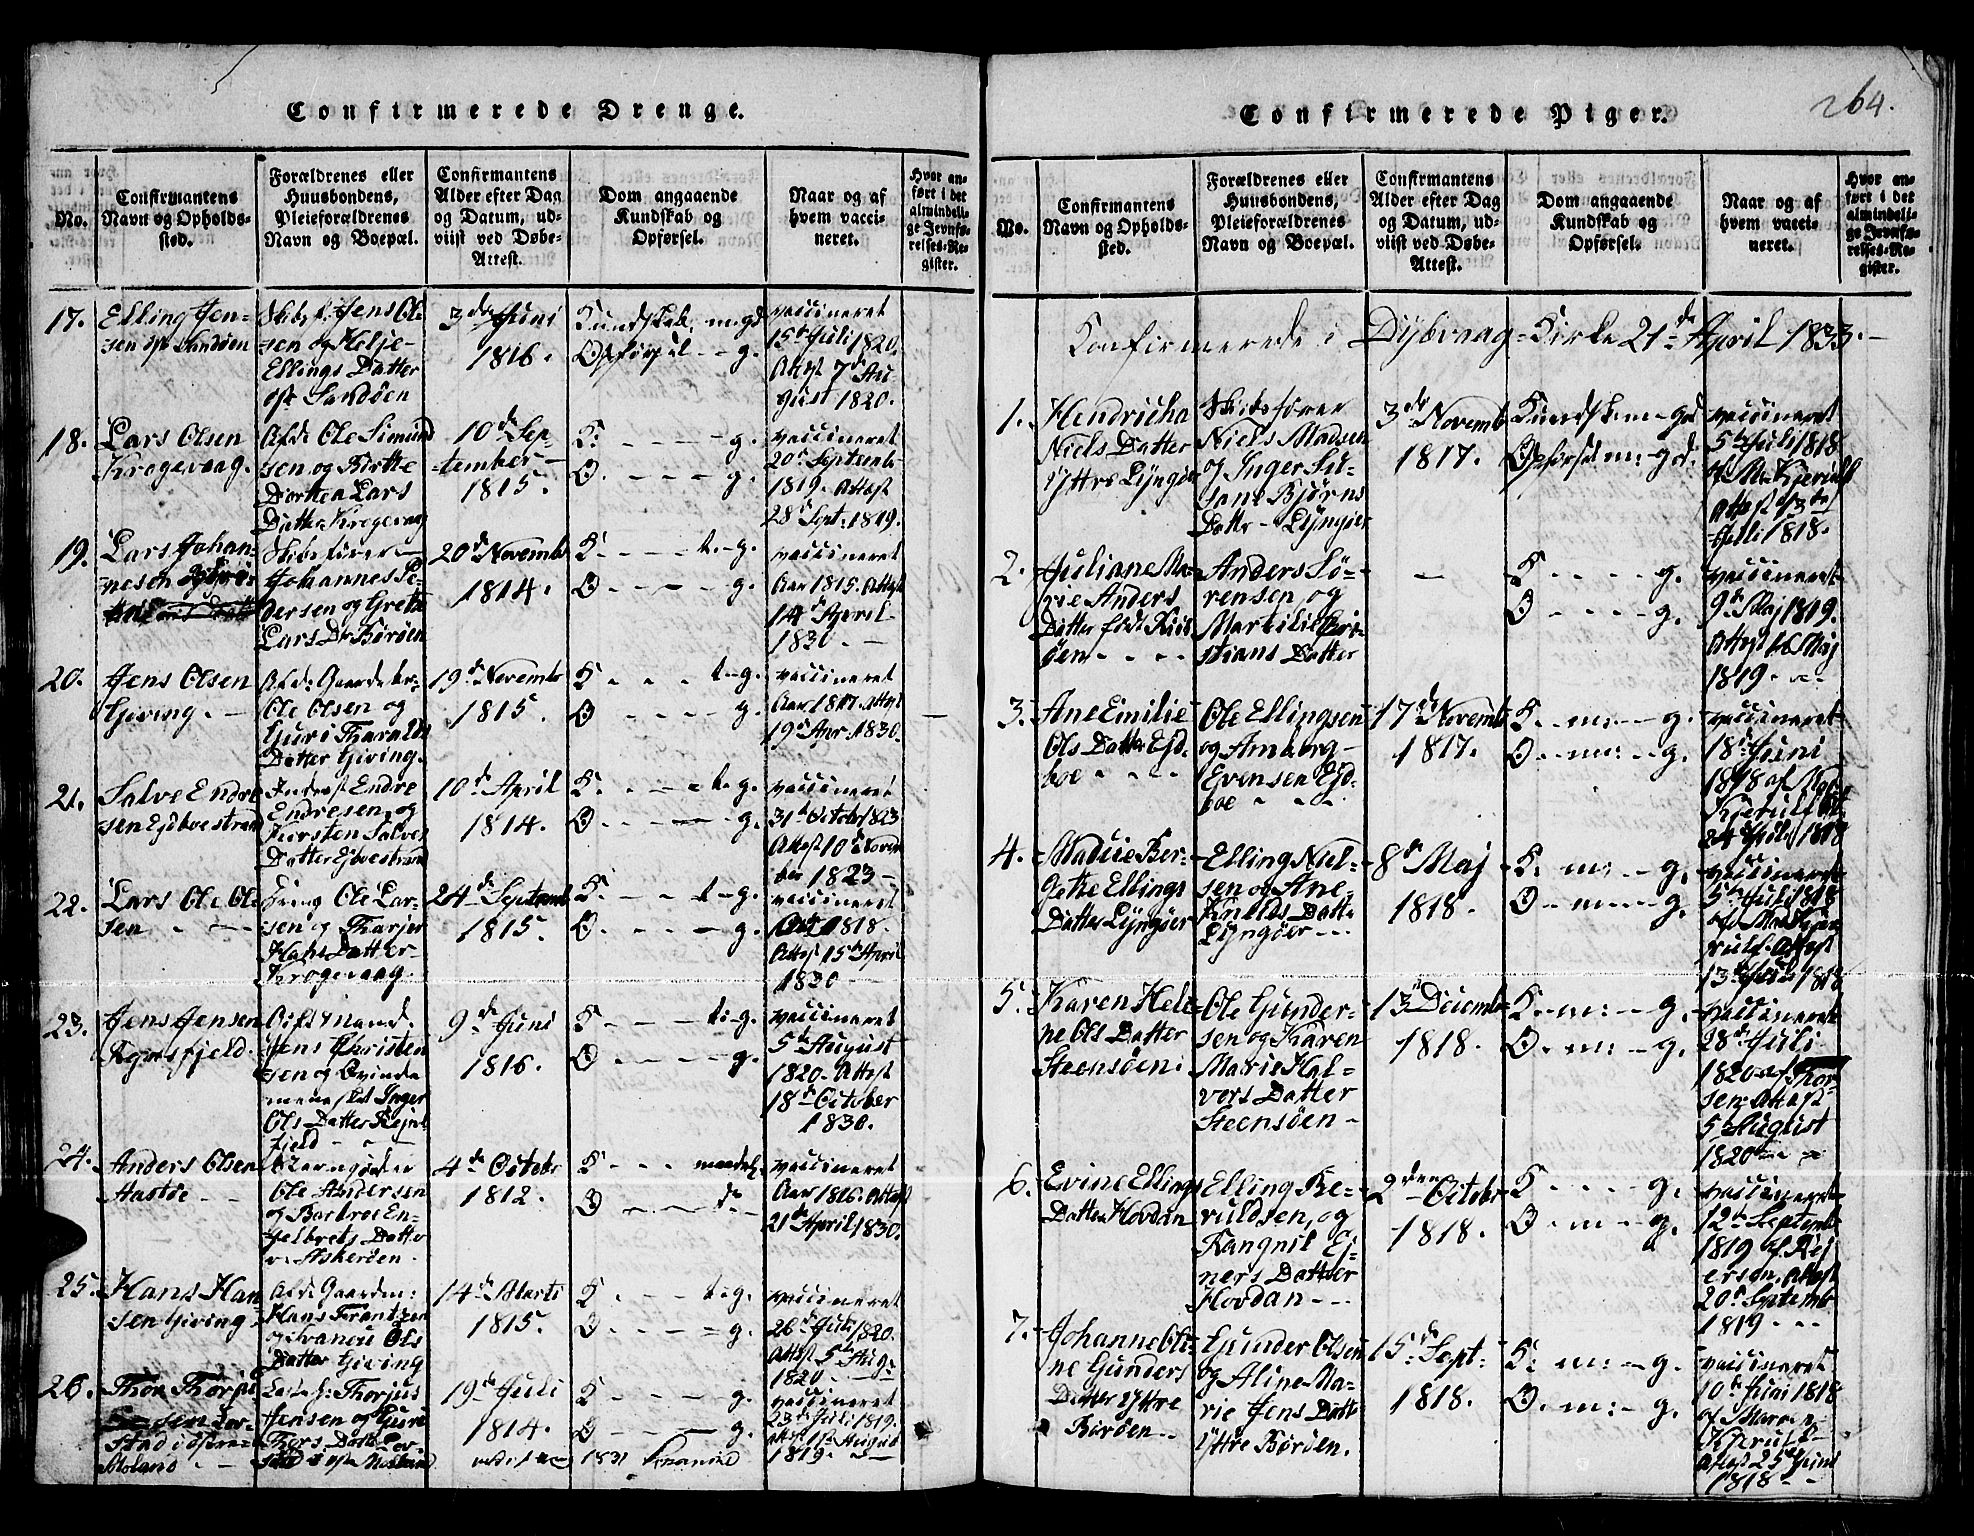 Confirmerede Drenge.
No.
Confirmantens
Navn og Opholds-
sted.
Forældrenes eller
Huusbondens,
Pleieforældrenes
Navn og Boepæl.
Confirmantens
Alder efter Dag
og Datum, ud-
viist ved Døbe-
Attest.
Dom angaaende
Kundskab og
Opførsel.
Naar og af
hvem vacci-
neret.
Hvor an-
ført i det
almindeli-
ge Jevnfø-
relses-Re-
gister.
17.
Elling Jen-
sen Sandøen
Jens Ol-
sen og Helje
Ellings Datter
Sandøen
3de Juni
1816.
Kundskab m-gd
Opførsel - - g.
vaccineret
15de Juli 1820.
Attest 7de Au-
gust 1820.
18.
Lars Olsen
Krogevaag.
Afd: Ole Simund
sen og Birthe
Dorthea Lars
Datter Krogevaag
10de Sep-
tember
1815.
K: - - - - g.
O. - - - - g.
vaccineret
20de Septemb.
1819. Attest
28de Sept: 1819.
19.
Lars Johan-
nesen
Skibsfører
Johannes Pe-
dersen og Grethe
Lars Dr Børøen
20de Novemb
1814.
K - - - - t-g.
O - - - - g.
vaccineret
Aar 1815. Attest
14de April
1830. -
20.
Jens Olsen
Giving. -
Afd: Gaardbr.
Ole Olsen og
Guri Tharalds
Datter Giving.
19de Novembr
1815.
K - - - t-g.
O - - - - g.
vaccineret
Aar 1817. Attest
19de Apr. 1830.
21.
Salve Endre
sen Ejdboestrand
Inderst Endre
Endresen, og
Kirsten Salves
Datter Ejboestrand
10de April
1814.
K. - - - t-g.
O. - - - g.
vaccineret
31te Octobr 1823
Attest 10de Novem
ber 1823 -
22.
Lars Ole Ol
sen - -
Ole Lar-
sen og Tharjer
Hans Datter
Krogevaag.
24de Septemb
1815.
K. - - - t-g.
O. - - - g.
vaccineret
1818.
Attest 15de April
1830 -
23.
Jens Jensen
Rejersfjeld.
Jens Christen
sen og Qvinde
Inger
Ols Datter Rejers
fjeld - -
9de Juni
1816.
K - - - t-g.
O - - - - g.
vaccineret
5te August
1820. Attest
18de October
1830.
24.
Anders Olsen
Hastøe - -
Ole Andersen
og Barbroe En-
gelbrets Datter
v. Askerøen.
4de Octobr
1812.
K - - - maadel.
O - - - do
vaccineret
Aar 1816. Attest
21de April 1830.
25.
Hans Han
sen Giving
Afd: Gaardm:
Hans Frantzen
og Ols
Datter Giving
14de Marti
1815.
K - - - t-g.
O - - - - g.
vaccineret
26de Juli 1820.
Attest 5te Aug.
1820 -
26.
Thor Thorju
sen Lar-
stad i Østre
Moland -
Thorjus
Jensen og Guri
Thors Datter Lar-
stad i Østre Moland
19de Juli
1814.
K - - - - g.
O - - - - g.
vaccineret
23de Juli 1819.
Attest 1ste August
1819. -
Confirmerede Piger.
264.
No.
Confirmantens
Navn og Opholds-
sted.
Forældrenes eller
Huusbondens,
Pleieforældrenes
Navn og Boepæl.
Confirmantens
Alder efter Dag
og Datum, ud-
viist ved Døbe-
Attest.
Dom angaaende
Kundskab og
Opførsel.
Naar og af
hvem vacci-
neret.
Hvor an-
ført i det
almindeli-
ge Jevnfø-
relses-Re-
gister.
Konfirmerede i Dybvaag-Kirke 21de April 1833. -
1.
Hendricha
Niels Datter
Yttre Lyngør
Skibsfører
Niels Madsen
og Inger Su-
sane Bjørns
Datter - Lyngør
3de Novemb
1817.
Kundsk. m-gd
Opførsel m-gd.
vaccineret
5te Juli 1818
af Mr Kjerulf
Attest 13de
Juli 1818.
2.
Juliane Ma-
rie Anders
Datter født Kiis
øen - -
Anders Sø-
rensen, og
Mar Chri-
stians Datter
-
K - - - - g.
O - - - - g.
vaccineret
9de Maj 1819.
Attest 16 Maj
1819. -
3.
Ane Emilie
Ols Datter Ejd-
boe - - -
Ole Ellingsen
og Amborg
Evensen Ejd-
boe - - -
17de Novemb
1817.
K. - m: - g.
O - m: - g.
vaccineret
18de Juni
1818 af Mad
Kjerulf Att
24 Juli 1818
4.
Ber-
gethe Ellings
Datter Lyngør
Elling Niel-
sen og Ane
Knelds Datt.
Lyngøer - - -
8de Maj
1818.
K. m: - g.
O - m - - g.
vaccineret
5te Juli 1818
af Mad Kjer
rulf. Attest
13de Juli 1818
5.
Karen Hele
ne Ols Datter
Steensøen.
Ole Gunder-
sen og Karen
Marie Hal-
vors Datter
Steensøen -
13de Decemb
1818.
K. - m: - g.
O. - m: - g.
vaccineret
28de Juli
1820 af Thor-
sen. Attest
5te August
1820 - -
6.
Evine Ellings
Datter Hovdan
Elling Be-
ruldsen, og
Rangnil Ej-
ners Datter
Hovdan - - -
2den Octobr
1818.
K - - - g.
O - m - g.
vaccineret
12te Septemb
1819 af Rej
ersen, Attest
20de Septemb
1819 - - -
7.
Johanne Oli-
ne Gunders
Datter Yttre
Børøen -
Gunder Olsen
og Aline Ma-
rie Jens Datt
Yttre Børøen.
15de Sept:
1818.
K. m: - g.
O. m: - g.
vaccineret
10de Juni 1818
af Maren
Kjerulf -
Attest 25de Juni
1818 - -